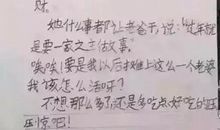 财。
她什么事都让老爸干,说:"过年就
是要一家之主做事。
唉唉!要是我以后摊上这么一个老婆
我该怎么活呀?
不想那么多了,还是多吃点好吃的压
压惊吧!